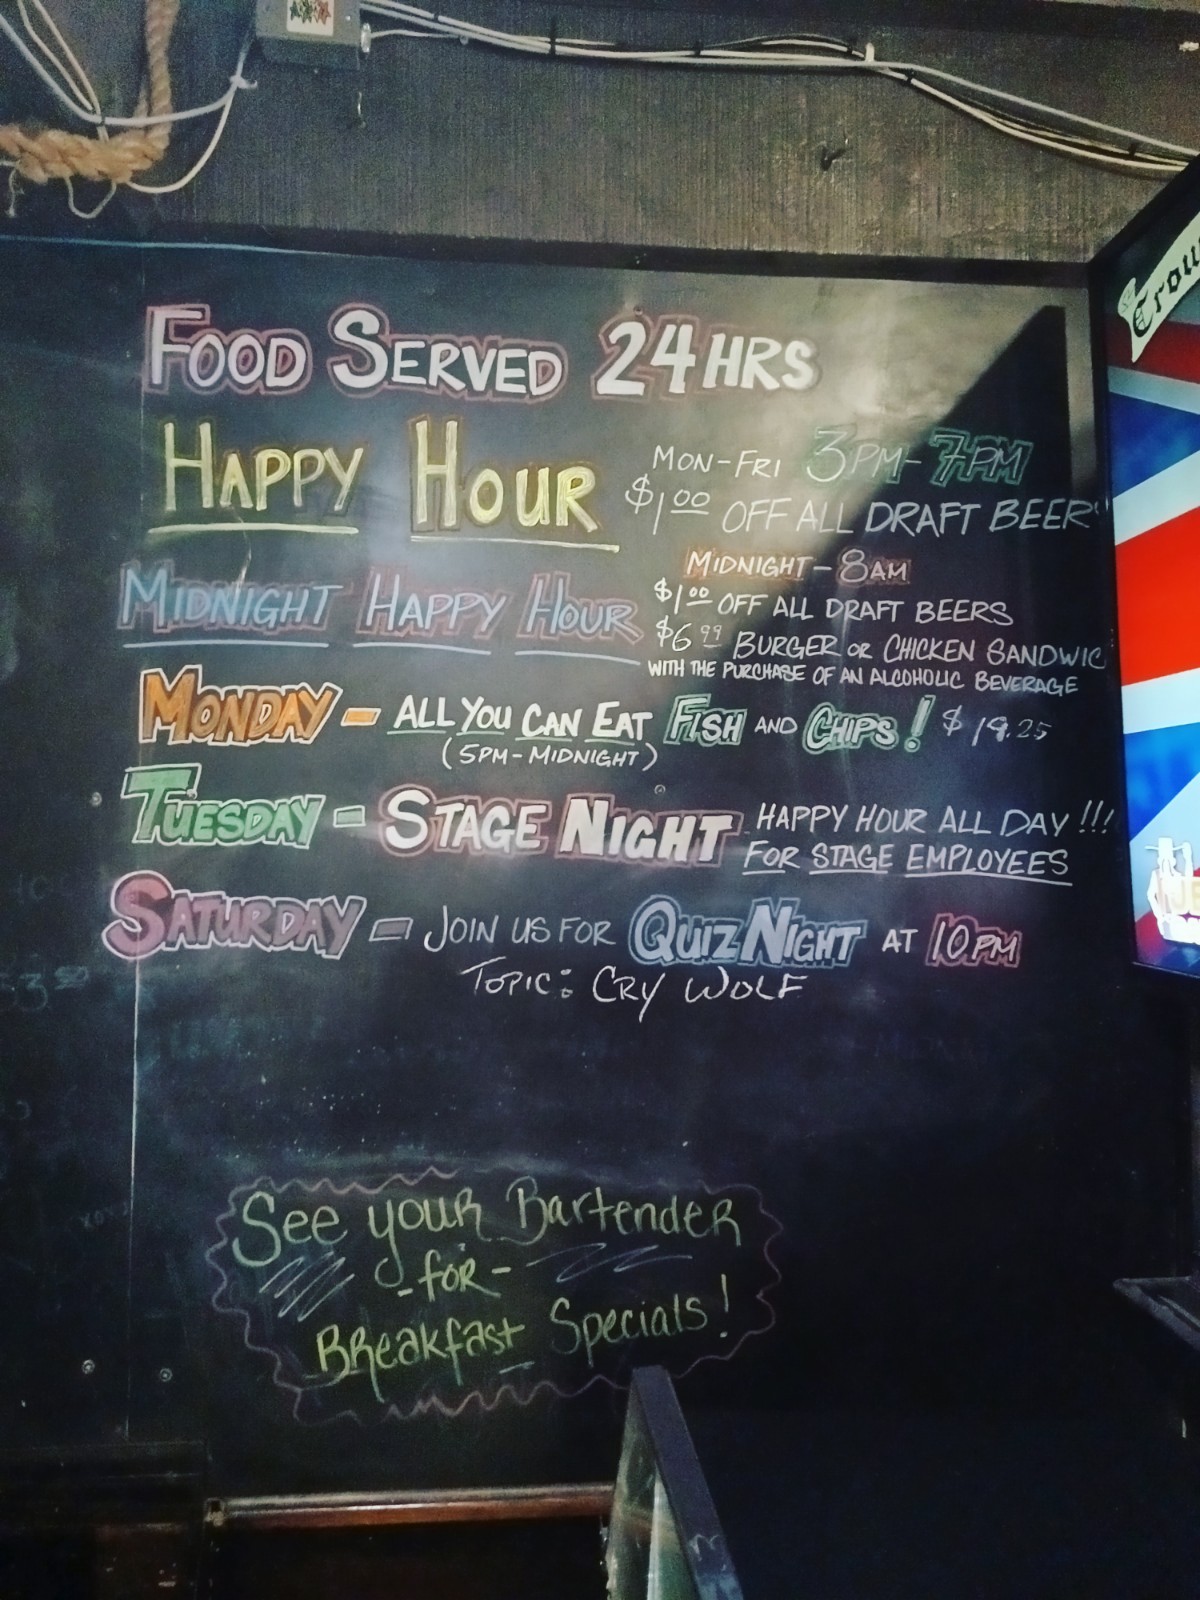 FOOD SERVED 24 HRS
HAPPY HOUR
MON-FRI 3PM-7PM
$1.00 OFF ALL DRAFT BEER
MIDNIGHT HAPPY HOUR
MIDNIGHT - 8AM
$1.00 OFF ALL DRAFT BEERS
$6.99 BURGER OR CHICKEN SANDWIC
WITH THE PURCHASE OF AN ALCOHOLIC BEVERAGE
MONDAY - ALL YOU CAN EAT FISH AND CHIPS!
(5PM - MIDNIGHT)
TUESDAY - STAGE NIGHT HAPPY HOUR ALL DAY!!!
FOR STAGE EMPLOYEES
SATURDAY - JOIN US FOR QUIZ NIGHT AT 10PM
TOPIC: CRY WOLF
See your Bartender
-for-
Breakfast Specials!